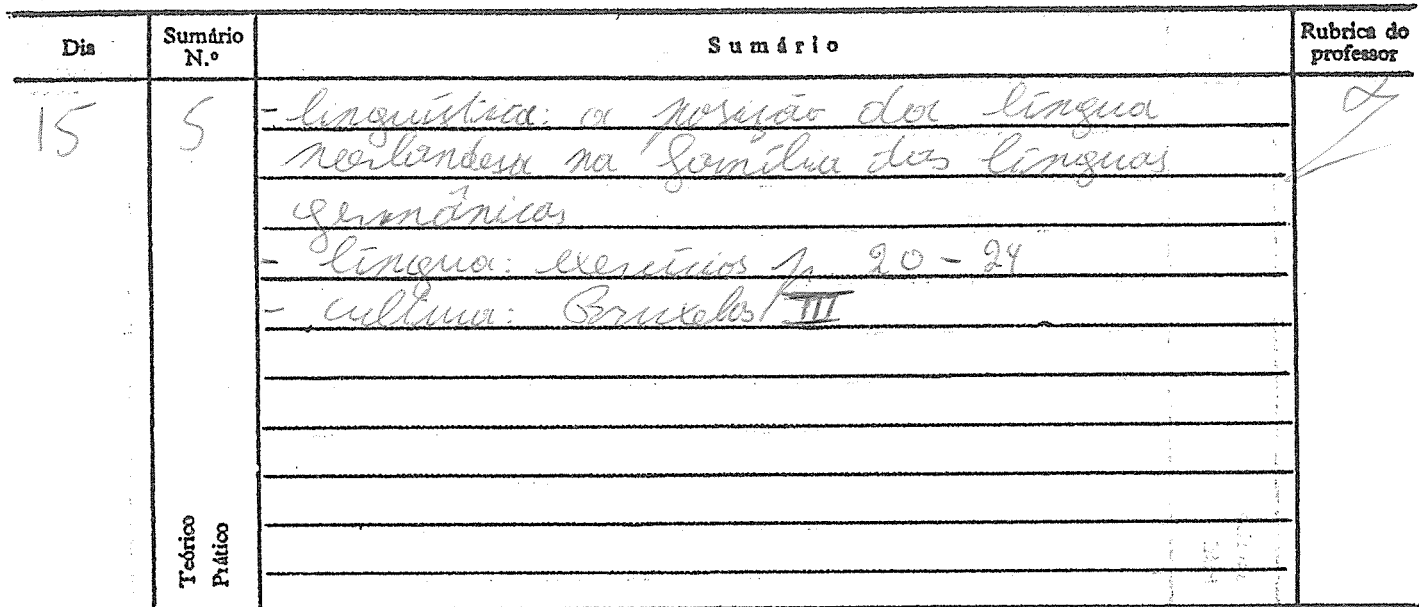 Dia Sumário N.º Sumário Rubrica do professor
15 5 - linguística: a posição da língua
neerlandesa na família das línguas
germânicas
- língua: exercícios p. 20 - 24
- cultura: Bruxelas III
Teórico
Prático